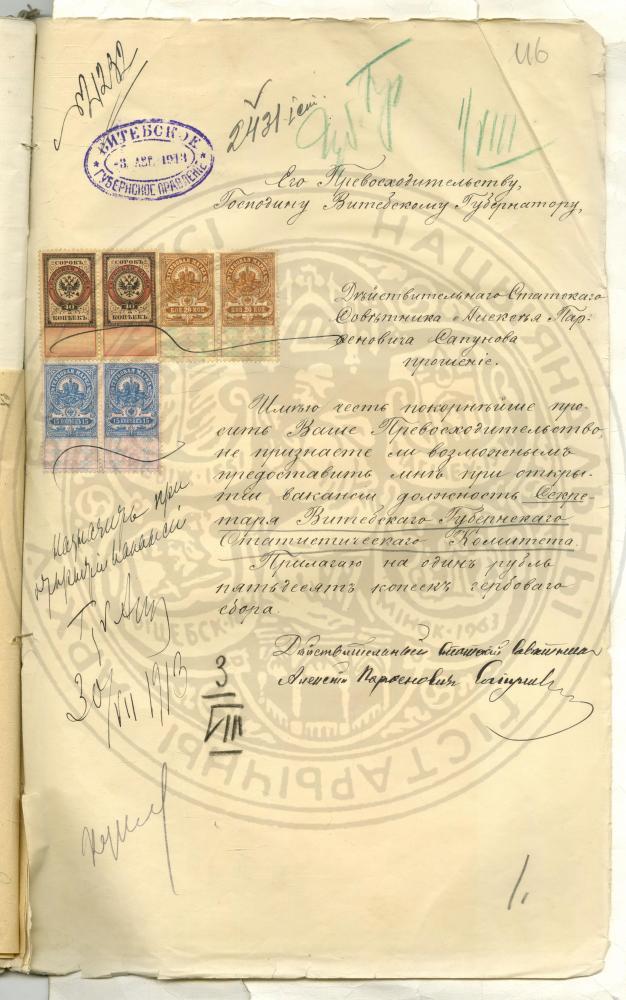 116
№ 21232
2431
1/VIII
ВИТЕБСКОЕ
-3. АВГ. 1913
ГУБЕРНСКОЕ ПРАВЛЕНІЕ
Его Превосходительству,
Господину Витебскому Губернатору,
СОРОКЪ СОРОКЪ ГЕРБОВАЯ МАРКА ГЕРБОВАЯ МАРКА
40 40 КОП 20 КОП КОП 20 КОП
КОПѢЕКЪ КОПѢЕКЪ
ГЕРБОВАЯ МАРКА ГЕРБОВАЯ МАРКА
15 КОПѢЕКЪ 15 15 КОПѢЕКЪ 15
Дѣйствительнаго Статскаго
Совѣтника Алексѣя Пар-
ѳеновича Сапунова
прошеніе.
Имѣю честь покорнѣйше про-
сить Ваше Превосходительство,
не признаете ли возможнымъ
предоставить мнѣ при откры-
тіи вакансіи должность Секре-
таря Витебскаго Губернскаго
Статистическаго Комитета.
Прилагаю на одинъ рубль
пятьдесятъ копеекъ гербоваго
сбора.
Дѣйствительный Статскій Совѣтникъ
Алексѣй Парѳеновичъ Сапуновъ
Назначить при
открытіи вакансіи
30/VII 1913
3
VIII
1.